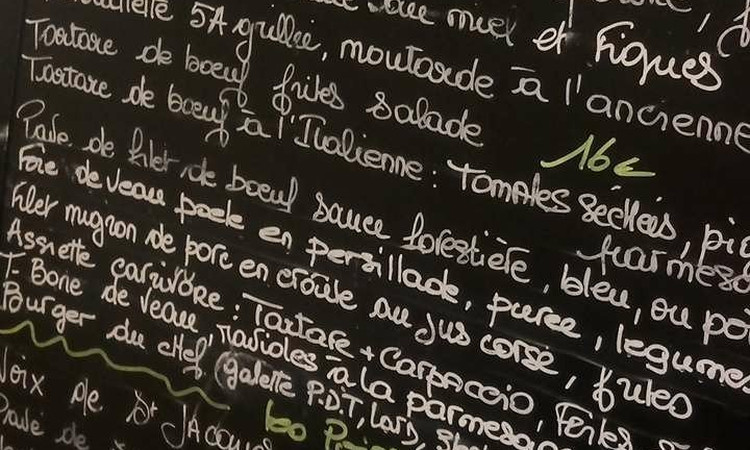 au miel et Figues
5A grillée, moutarde à l'ancienne
Tartare de boeuf frites salade
Tartare de boeuf à l'Italienne : Tomates séchées,
16€
parmesa
Pavé de filet de boeuf sauce forestière, bleu, ou poi
Foie de veau poele en persillade, puree, legumes
Filet mignon de porc en croûte au jus corsé, frites
Assiette carnivore : Tartare + Carpaccio, Frites
T-Bone de veau, ravioles à la parmesa
Burger du chef (galette P.D.T, Lard,
Noix de St JACques
Pavé de